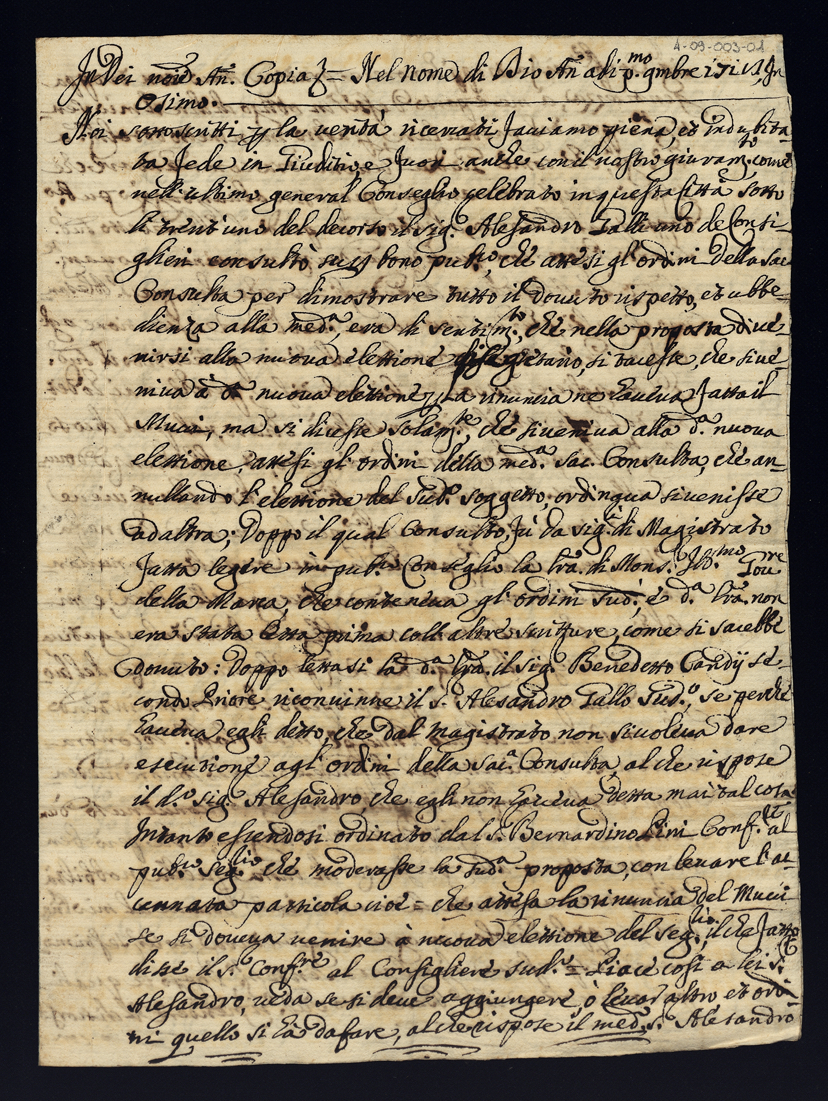 4-09-003-01
In Dei noie Am. Copia = Nel nome di Dio Am adi p.mo 9mbre 171 In
Osimo.
Noi sottoscritti p la verità ricercati facciamo piena, et indubita-
ta fede in Giuditio, e fuori anche con il nostro giuram.to come
nell'ultimo general Conseglio celebrato in questa Città sotto
li trent'uno del decorso il sig.r Alesandro Galli uno de Consi-
glieri consultò p bono pub.co, che attesi gl'ordini della Sac.
Consulta per dimostrare tutto il dovuto rispetto, et ubbe-
dienza alla med.a, era di sentim.to, che nella proposta di ve-
nirsi alla nuova elettione del Segretario, si tacesse, che si ve-
niva à nuova elettione p la rinuncia ne haveva fatta il
Mucci, ma si dicesse solam.te, che si veniva alla d.a nuova
elettione, attesi gl'ordini della med.a Sac. Consulta, che an-
nullando l'elettione del Sud.o soggetto, ordinava si venisse
ad altra: Doppo il qual Consulto, fù da sig.ri di Magistrato
fatta legere in pub.co Conseglio la lra di Mons. Ill.mo Gov.re
della Marca, che conteneva gl'ordini sud.i, e d.a lra non
era stata letta prima coll'altre scritture, come si sarebbe
dovuto: Doppo lettasi la d.a lra il sig. Benedetto Candij se-
condo Priore riconvinne il S.r Alesandro Gallo Sud.o, se perche
haveva egli detto, che dal magistrato non si voleva dare
esecutione agl'ordini della Sac.a Consulta, al che rispose
il d.o sig.r Alesandro, che egli non haveva detta mai tal cosa
Intanto essendosi ordinato dal S.r Bernardino Lini Conf.re al
pub.co Seg.rio che moderasse la sud.a proposta, con levare l'ac-
cennata particola cioè = che attesa la rinuncia del Mucci
se si doveva venire à nuova elettione del seg.rio, il che fatto
disse il S.r Conf.re al Consigliere sud.o = Piace così a lei S.r
Alesandro, veda se si deve aggiungere, ò levar altro, et ori-
ni quello si hà da fare, al che rispose il med.o S.r Alesandro